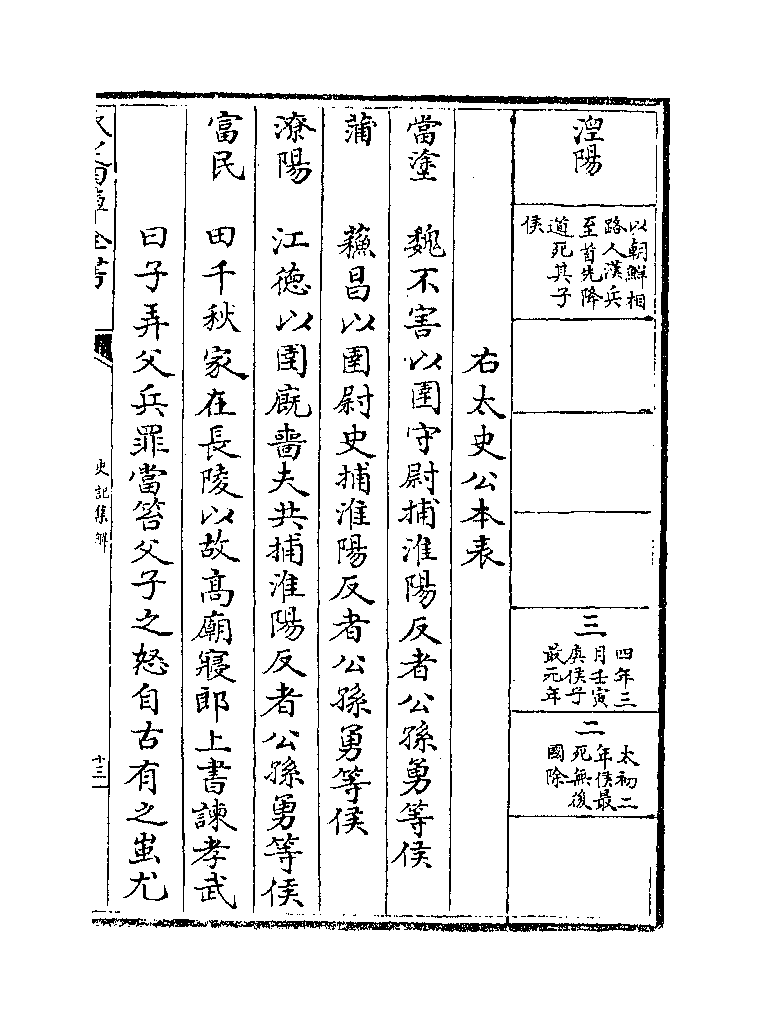 湼陽
以朝鮮相
路人漢兵
至首先降
道死其子
侯
三
四年三
月壬寅
康侯子
最元年
二
太初二
年侯最
死無後
國除
右太史公本表
當塗　魏不害以圉守尉捕淮陽反者公孫勇等侯
蒲　蘓昌以圉尉史捕淮陽反者公孫勇等侯
潦陽　江德以圉廐嗇夫共捕淮陽反者公孫勇等侯
富民　田千秋家在長陵以故髙廟寢郎上書諫孝武
曰子弄父兵罪當笞父子之怒自古有之蚩尤
史記集解